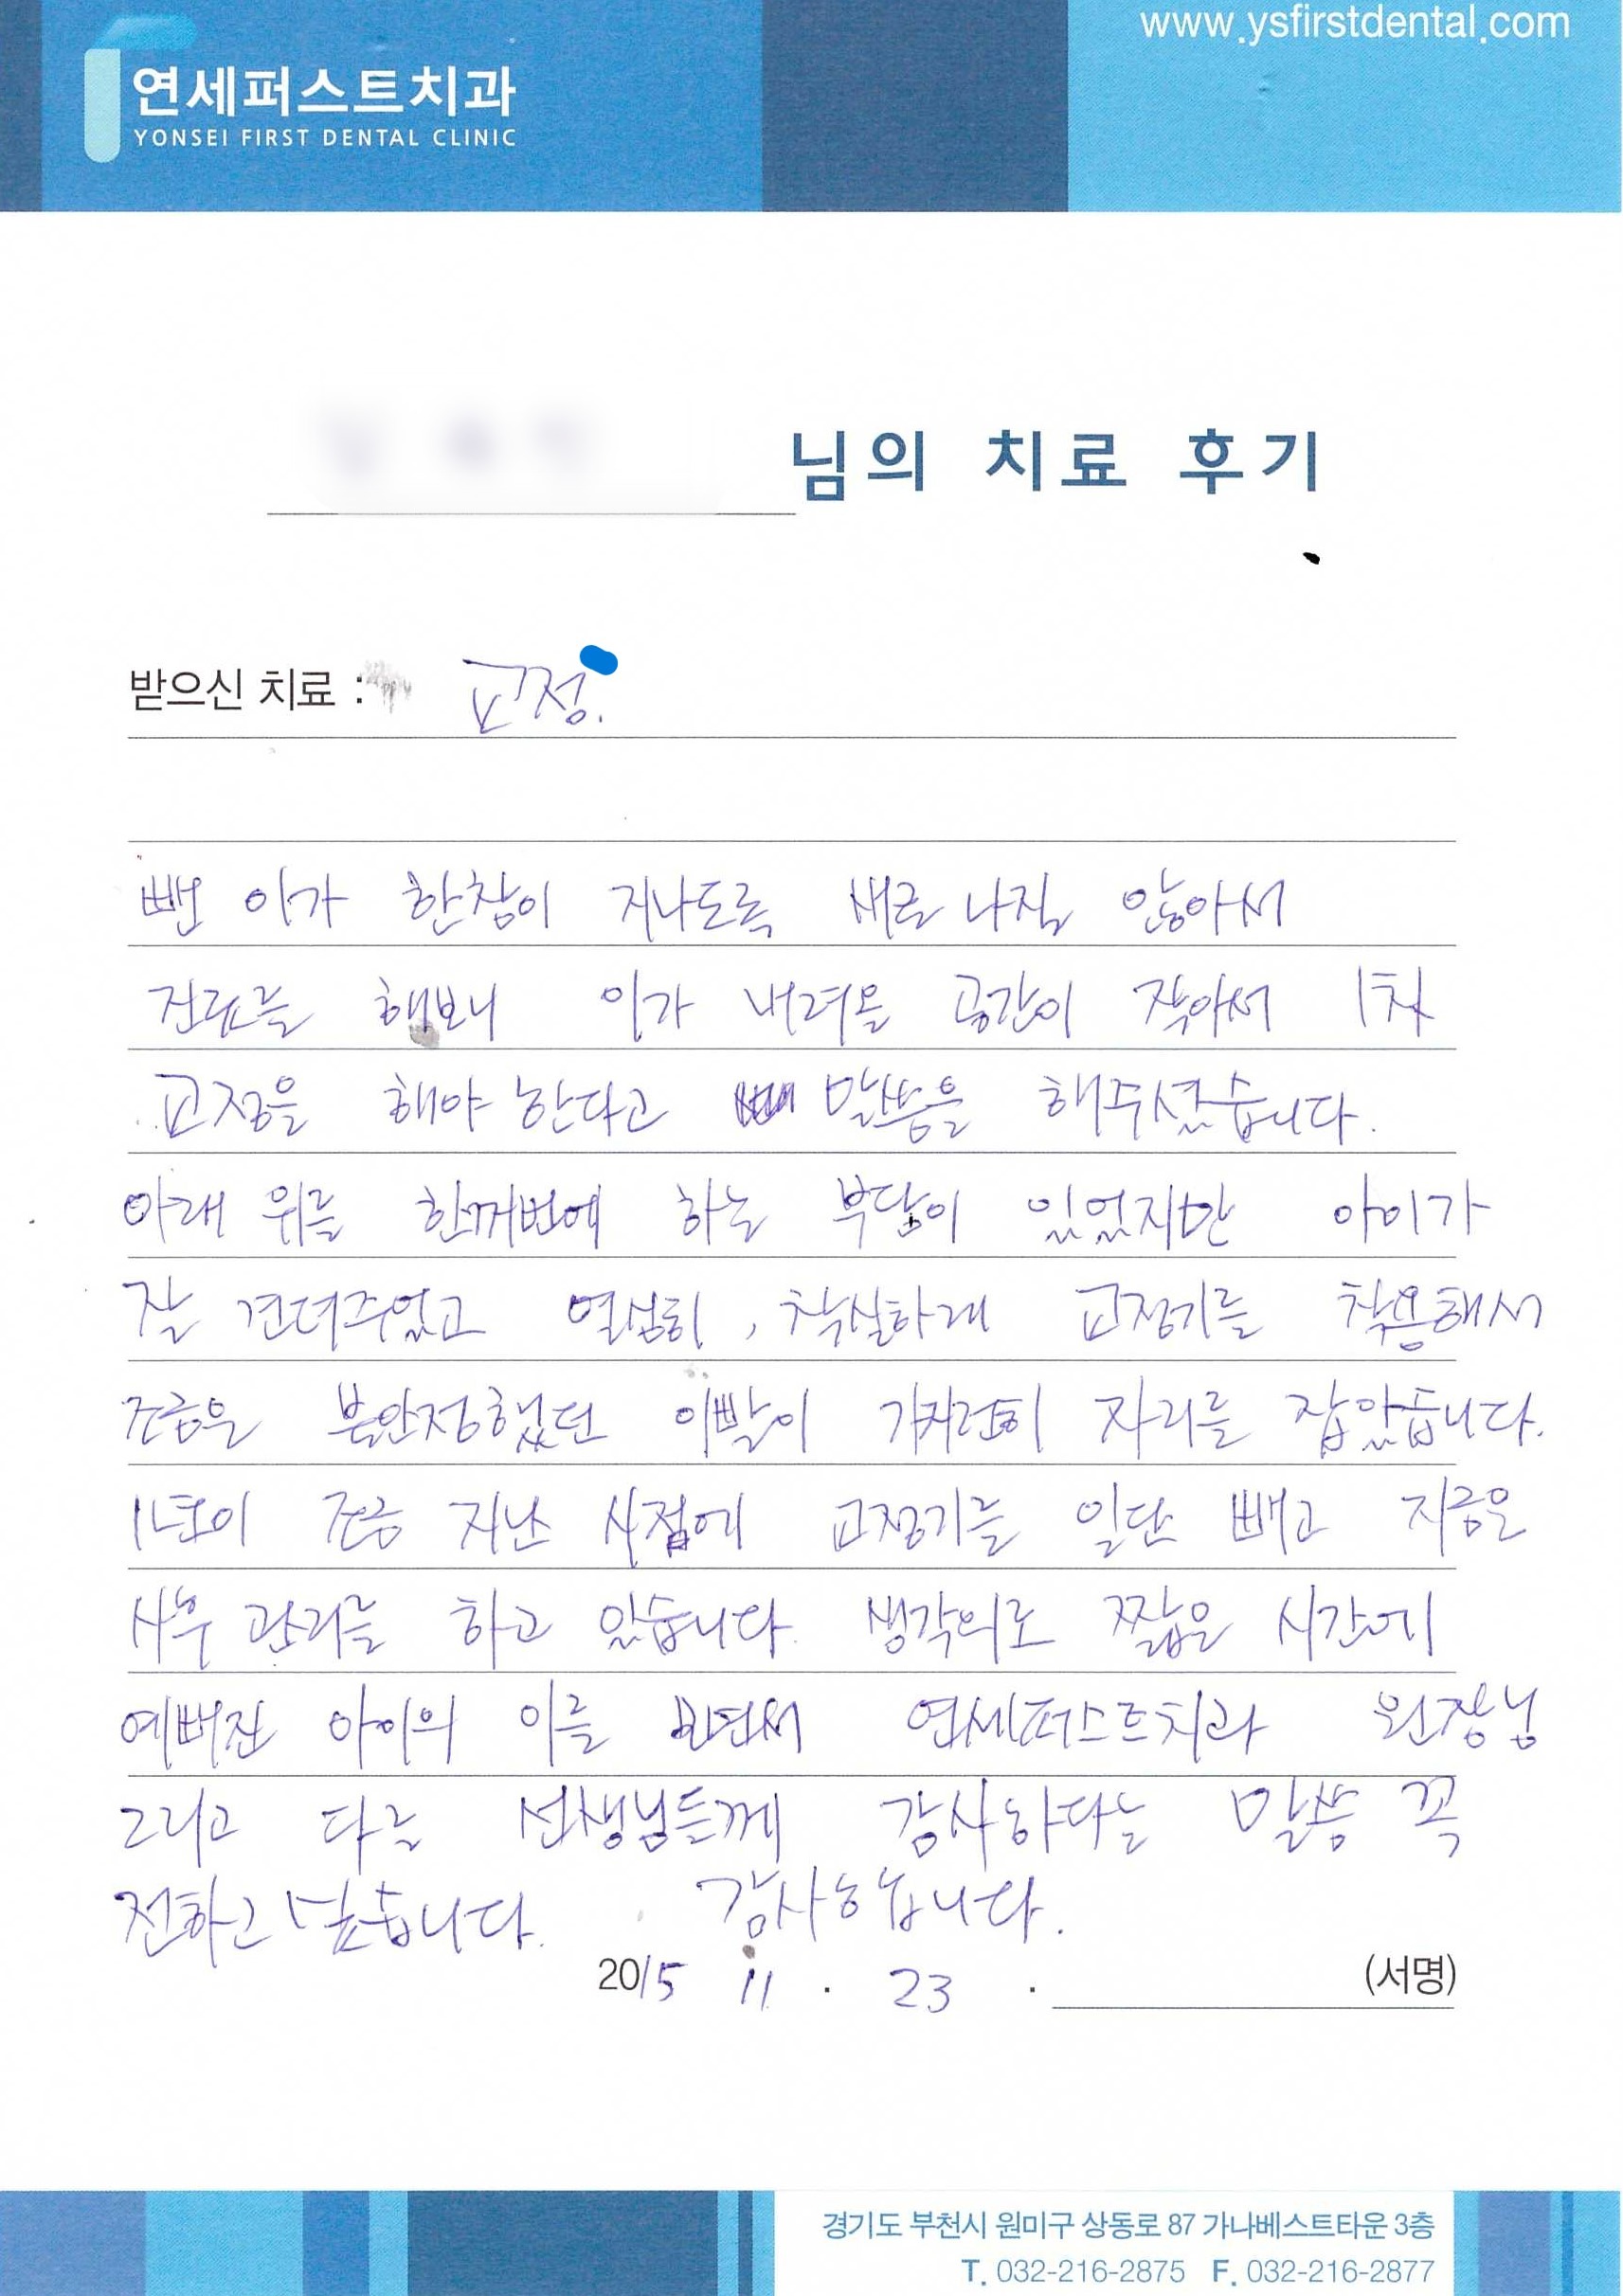 www.ysfirstdental.com
연세퍼스트치과
YONSEI FIRST DENTAL CLINIC
님의 치료 후기
받으신 치료 : 교정.
뺀 이가 한참이 지나도록 새로 나질 않아서
진료를 해보니 이가 내려올 공간이 작아서 1차
교정을 해야 한다고 말씀을 해주셨습니다.
아래 위를 한꺼번에 하는 부담이 있었지만 아이가
잘 견뎌주었고 열심히, 착실하게 교정기를 착용해서
조금은 불안정했던 이빨이 가지런히 자리를 잡았습니다.
1년이 조금 지난 시점에 교정기를 일단 빼고 지금은
사후 관리를 하고 있습니다. 생각외로 짧은 시간에
예뻐진 아이의 이를 보면서 연세퍼스트치과 원장님
그리고 다른 선생님들께 감사하다는 말씀 꼭
전하고 싶습니다. 감사합니다.
2015 11 . 23 . (서명)
경기도 부천시 원미구 상동로 87 가나베스트타운 3층
T. 032-216-2875 F. 032-216-2877